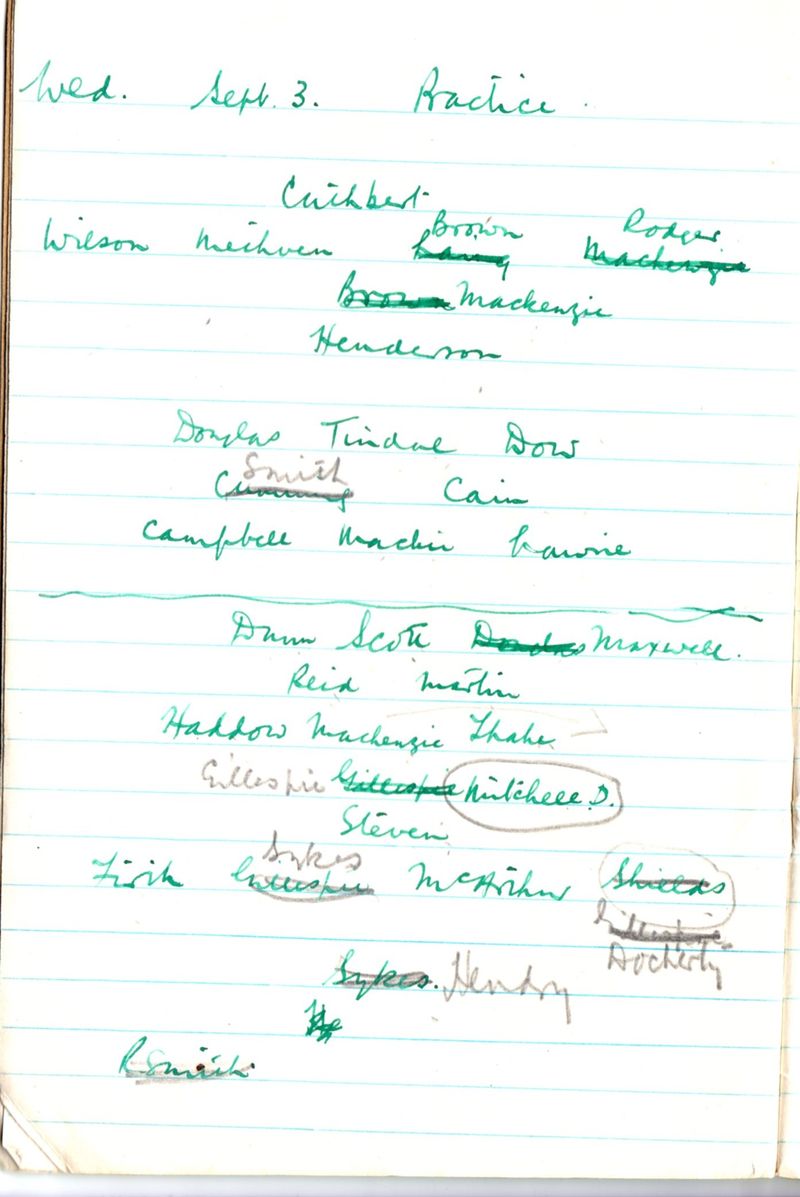 Wed. Sept. 3. Practice.
Cuthbert
Brown Rodger
Wilson Methven Laing Mackenzie
Brown Mackenzie
Henderson
Douglas Tindal Dow
Smith
Cumming Cain
Campbell Mackie Lawrie
Dunn Scott Maxwell.
Reid Martin
Haddow Mackenzie Thake
Gillespie Gillespie Mitchell D.
Steven
Sykes
Firth Gillespie McArthur Shields
Gillespie
Docherty
Sykes. Hendry
R Smith.